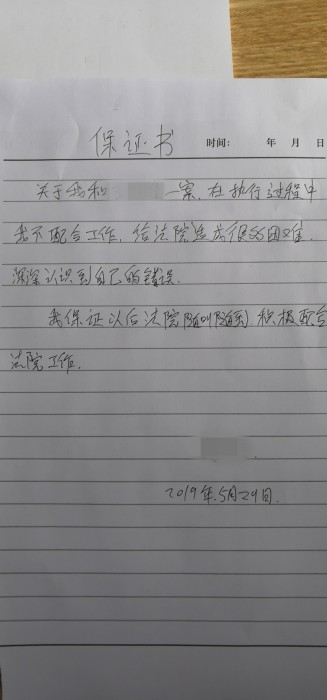 保证书
时间: 年 月 日
关于我和 一案,在执行过程中
我不配合工作,给法院造成很多困难,
深深认识到自己的错误.
我保证以后法院随叫随到积极配合
法院工作.
2019年.5月29日.